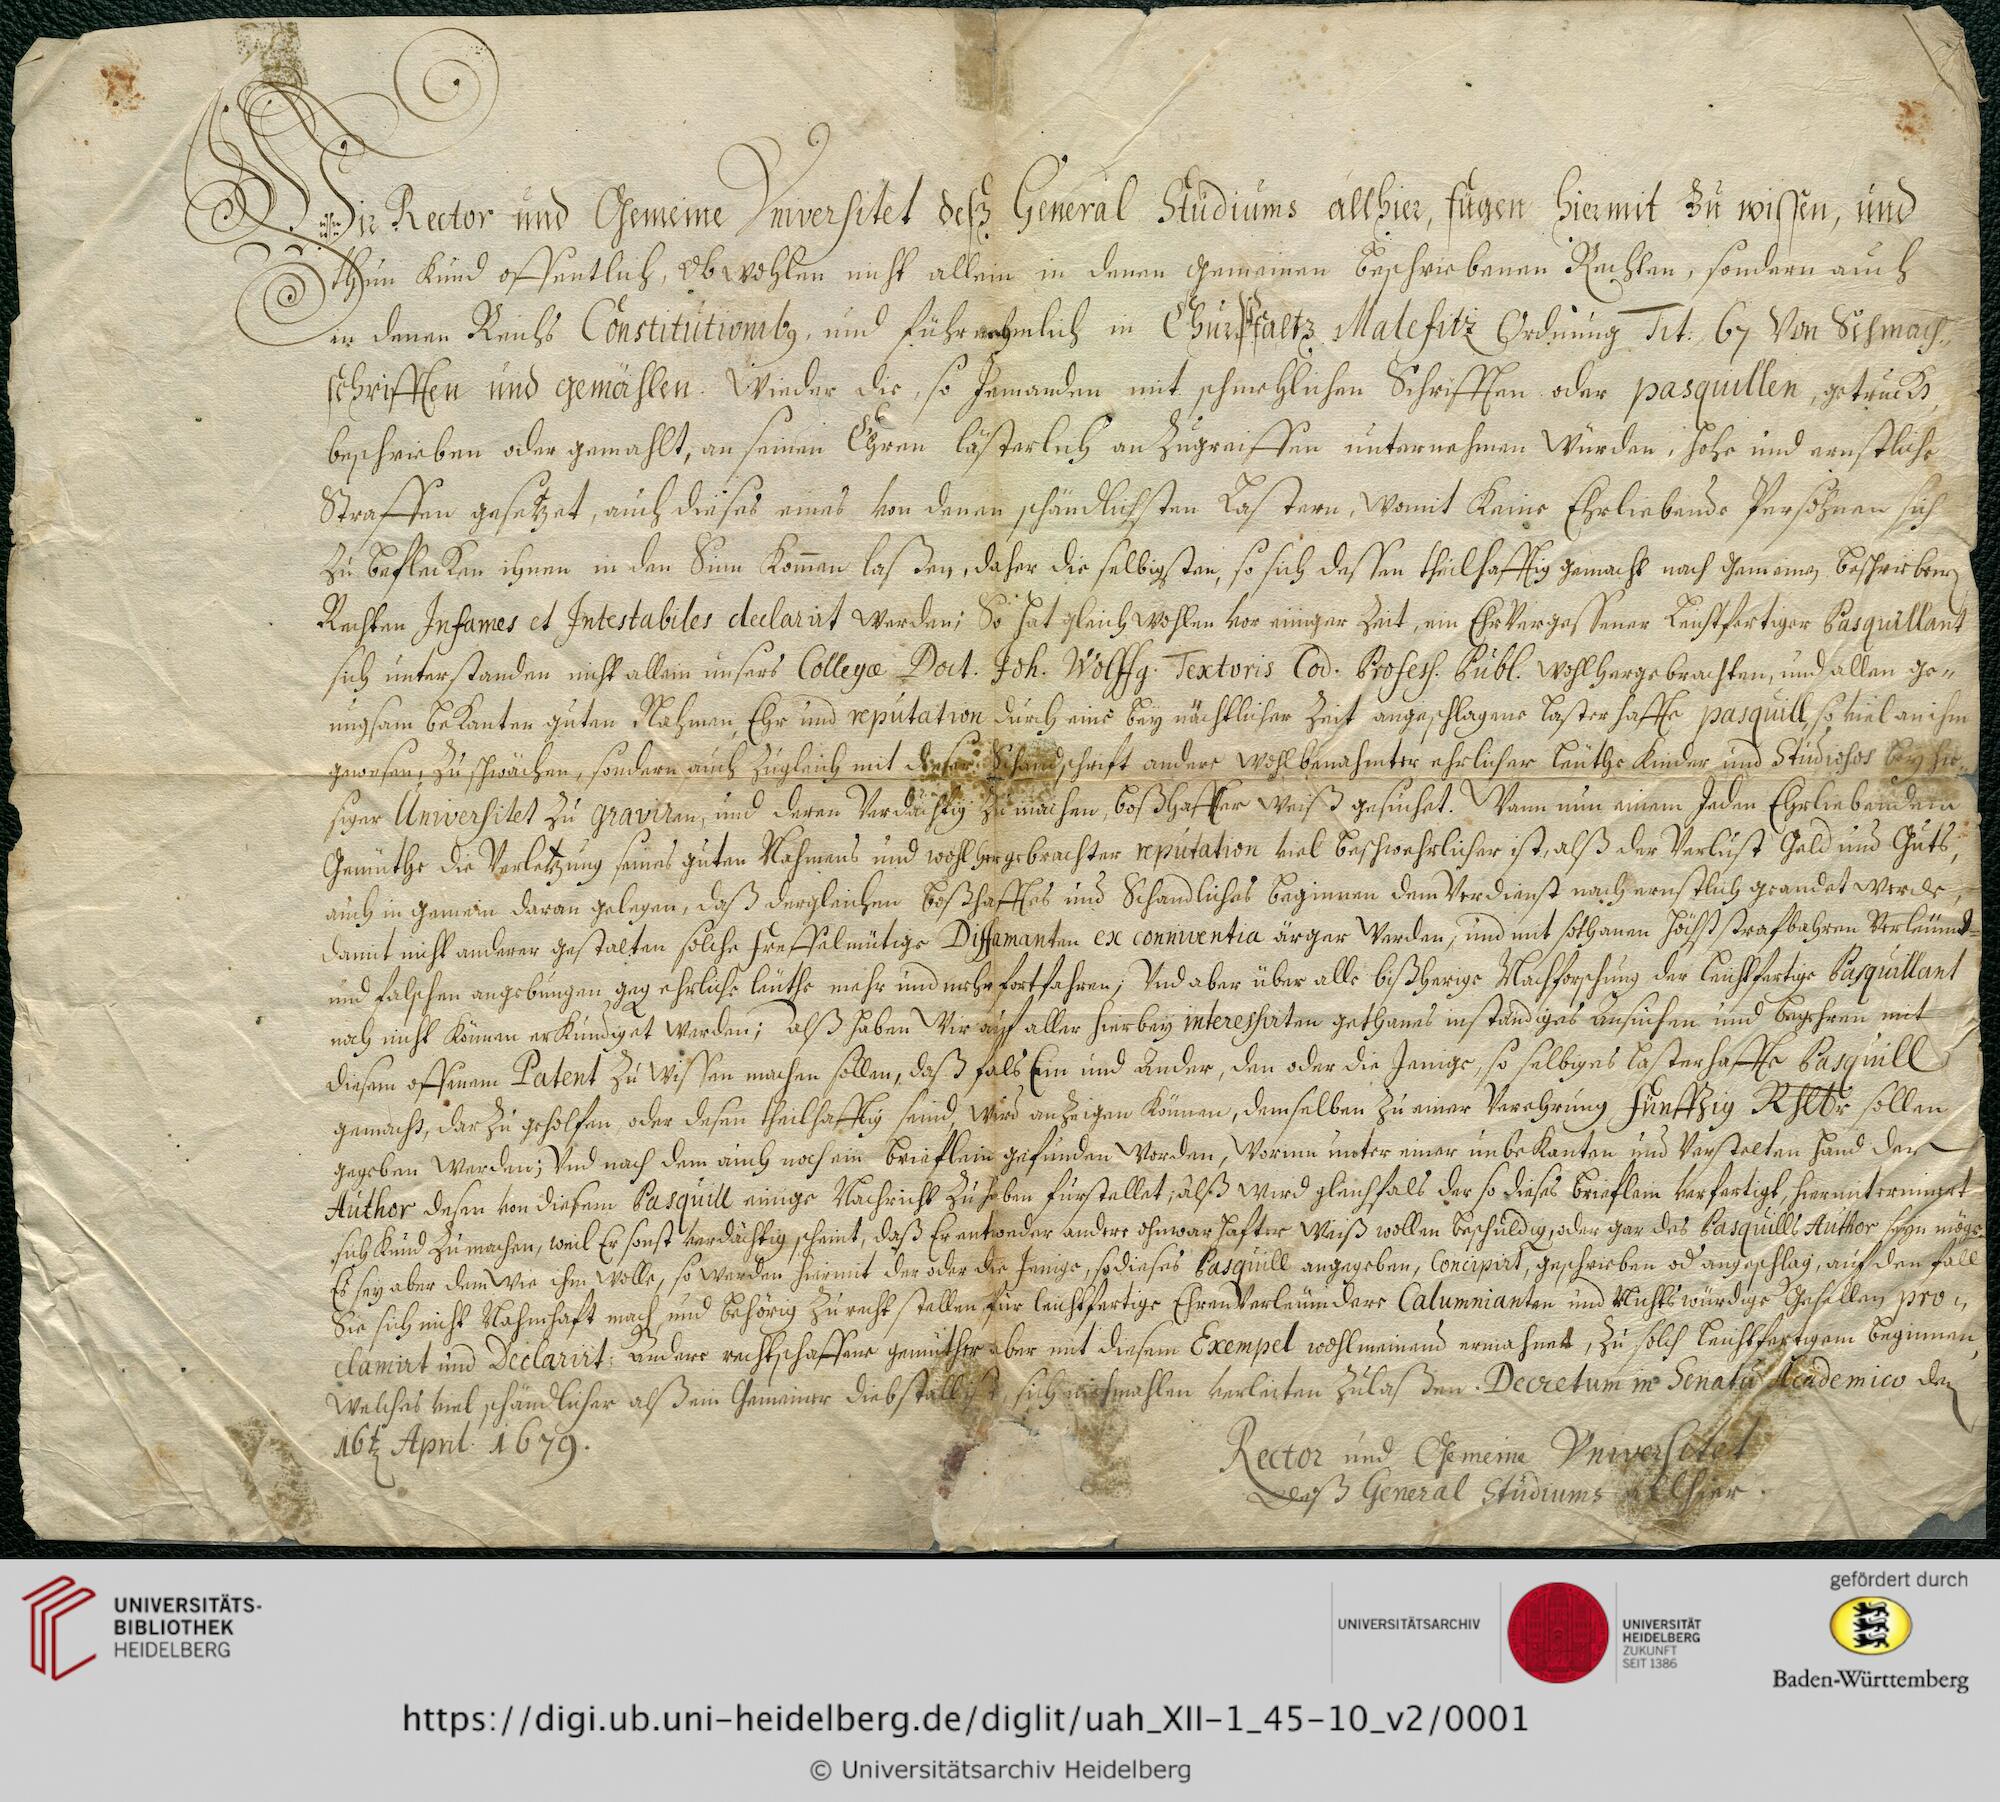 Wir Rector und Gemeine Vniversitet deß General Studiums allhier, fügen hiermit zu wissen, und
thun Kund offentlich, Obwohlen nicht allein in denen gemeinen beschriebenen Rechten, sondern auch
in denen Reichs Constitutionibꝰ, und führnehmlich in ChurPfaltz Malefitz Ordnung Tit. 67 Von Schmach-
schrifften und gemählen. Wieder die, so Jemanden mit schmehlichen Schrifften oder pasquillen, getruckt,
beschrieben oder gemahlt, an seinen Ehren lästerlich anzugreiffen unternehmen würden, hohe und ernstliche
Straffen gesetzet, auch dieses eines von denen schändlichsten Lastern, womit Keine Ehrliebende Persohnen sich
zu beflecken ihnen in den Sinn Kom̄en laßen, daher die selbigsten, so sich dessen theilhafftig gemacht nach gemeinen beschriebenen
Rechten Infames et Intestabiles declarirt werden; So hat gleichwohlen vor einiger Zeit, ein EhrVergessener Leichtfertiger Pasquillant
sich unterstanden nicht allein unsers Collegæ Doct. Joh. Wolffg. Textoris Cod. Profess. Publ. wohlhergebrachten, und allen ge-
nugsam beKanten guten Nahmen, Ehr und reputation durch eine bey nächtlicher Zeit angeschlagene lasterhaffte pasquill, so viel an ihm
gewesen, zu schwächen, sondern auch zugleich mit dieser Schandschrift andere wohlbenahmter ehrlicher leuthe Kinder und Studiosos bey hie-
siger Universitet zu graviren, und deren Verdächtig zu machen, boßhaffter weiß gesuchet. Wann nun einem Jeden Ehrliebendem
Gemüthe die Verletzung seines guten Nahmens und wohl hergebrachter reputation viel beschwehrlicher ist, alß der Verlust Geld und Guts,
auch in gemein daran gelegen, daß dergleichen boßhafftes und Schandliches beginnen dem Verdienst nach ernstlich geandet werde,
damit nicht anderer gestalten solche freffelmütige Diffamanten ex conniventia ärger werden, und mit sothanen höchst strafbahren Verleumd-
und falschen angebungen geg ehrliche leuthe mehr und mehr fortfahren; Vnd aber über alle bißherige Nachforschung der leichtfertige Pasquillant
noch nicht können erKundiget werden; alß haben Wir auff aller hierbey interessirten gethanes inständiges ansuchen und begehren mit
diesem offenem Patent zu wissen machen sollen, daß fals Ein und Ander, den oder die Jenige, so selbiges lasterhaffte Pasquill
gemacht, darzu geholfen, oder desen theilhafftig seind, wird anzeigen können, demselben zu einer Verehrung fünffzig Rthlr sollen
gegeben werden; Vnd nach dem auch noch ein brieflein gefunden worden, worinn unter einer unbeKanten und verstelten hand der
Author desen von diesem Pasquill einige Nachricht zu haben fürstellet; alß wird gleichfals der so dieses brieflein verfertigt, hiermit erinnert
sich Kund zu machen, weil Er sonst verdächtig scheint, daß Er entweder andere ohnwarhafter weiß wollen beschuldig, oder gar des Pasquills Author seyn möge.
Es sey aber dem wie ihm wolle, so werden hiermit der oder die Jenige, so dieses Pasquill angegeben, Concipirt, geschrieben od angeschlag, auf den fall
Sie sich nicht Nahmhaft mach und behörig zu recht stellen, für leichtfertige EhrenVerleumdere Calumnianten und Nichtswürdige Gesellen pro-
clamirt und Declarirt; Andere rechtschaffene gemüther aber mit diesem Exempel wohlmeinend ermahnet, zu solch leichtfertigem beginnen,
welches viel schändlicher alß ein Gemeiner diebstall ist, sich niehmahlen verleiten zulaßen. Decretum in Senatu Academico den
16t April 1679.
Rector und Gemeine Vniversitet
deß General Studiums allhier.
UNIVERSITÄTS-
BIBLIOTHEK
HEIDELBERG
UNIVERSITÄTSARCHIV
UNIVERSITÄT
HEIDELBERG
ZUKUNFT
SEIT 1386
gefördert durch
Baden-Württemberg
https://digi.ub.uni-heidelberg.de/diglit/uah_XII-1_45-10_v2/0001
© Universitätsarchiv Heidelberg